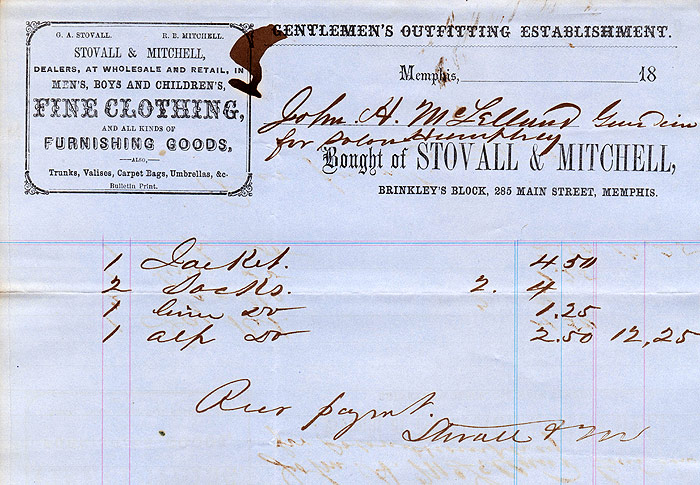 G. A. STOVALL. R. B. MITCHELL.
STOVALL & MITCHELL,
DEALERS, AT WHOLESALE AND RETAIL, IN
MEN'S, BOYS AND CHILDREN'S,
FINE CLOTHING,
AND ALL KINDS OF
FURNISHING GOODS,
—ALSO,—
Trunks, Valises, Carpet Bags, Umbrellas, &c.
Bulletin Print.
GENTLEMEN'S OUTFITTING ESTABLISHMENT.
Memphis, 18
John H. McLelland
for Solon Humphrey
Bought of STOVALL & MITCHELL,
BRINKLEY'S BLOCK, 285 MAIN STREET, MEMPHIS.
1 Jacket. 4.50
2 Socks. 2. 4
1 Linn do 1.25
1 alp do 2.50 12,25
Recr paymt.
Stovall & M